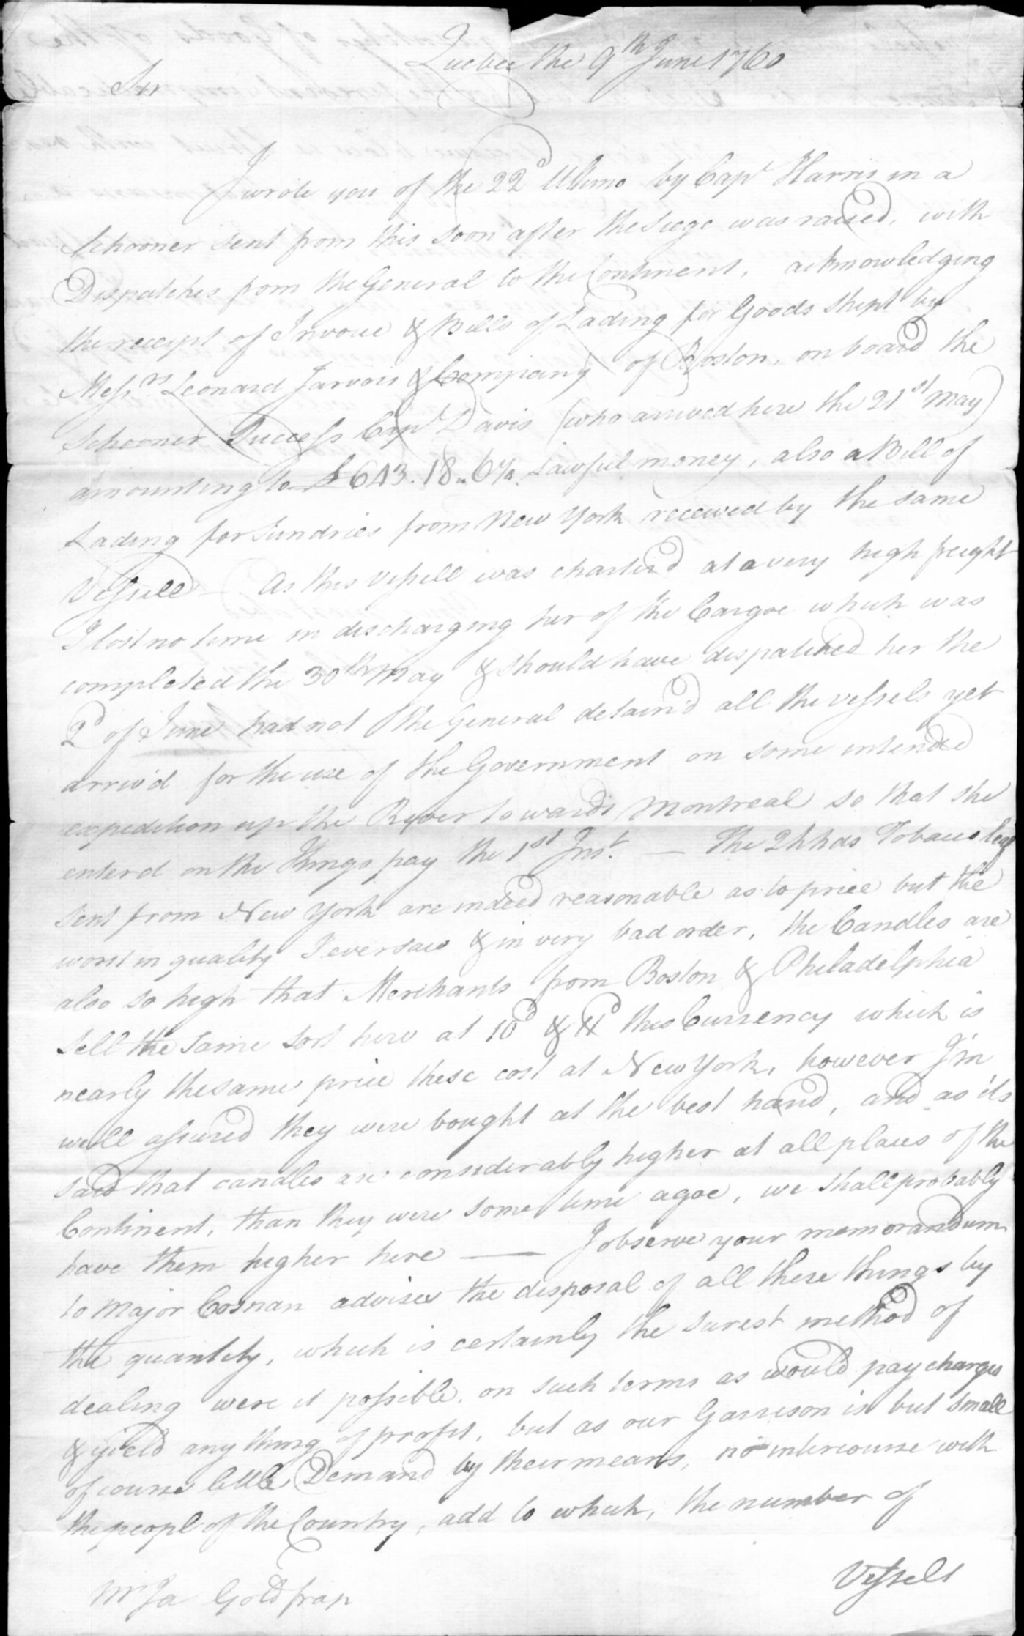 Quebec the 9th June 1760
Sir
I wrote you of the 22d Ultimo by Capt Harris in a
Schooner sent from this soon after the Siege was raised, with
Dispatches from the General to the Continent, acknowledging
the receipt of Invoice & Bills of Lading for Goods Shipt by
Messrs Leonard Jarvis & Company of Boston, on board the
Schooner Success Capt Davis (who arrived here the 21st May)
amounting to £643.18.6¼ Lawful money, also a Bill of
Lading for Sundries from New York received by the same
Vessell As this vessell was charterd at a very high freight
I lost no time in discharging her of the Cargoe which was
completed the 30th May & should have dispatched her the
2d of June had not the General detain'd all the vessels yet
arriv'd for the use of the Government on some intended
expedition up the River towards Montreal so that she
enterd on the Kings pay the 1st Inst. — The 2 hhds Tobacco
sent from New York are indeed reasonable as to price but the
worst in quality I ever saw & in very bad order, the Candles are
also so high that Merchants from Boston & Philadelphia
sell the same sort here at 10d & 11d this Currency which is
nearly the same price these cost at New York, however I'm
well assured they were bought at the best hand, and as its
said that candles are considerably higher at all places of the
Continent, than they were some time agoe, we shall probably
have them higher here — I observe your memorandum
to Major Cosnan advises the disposal of all these things by
the quantity, which is certainly the surest method of
dealing were it possible, on such terms as would pay charges
& yield any thing of profit, but as our Garrison is but small
of course little Demand by their means, no intercourse with
the peopl of the Country, add to which, the number of
Vessels
Mr Ja Goldfrap